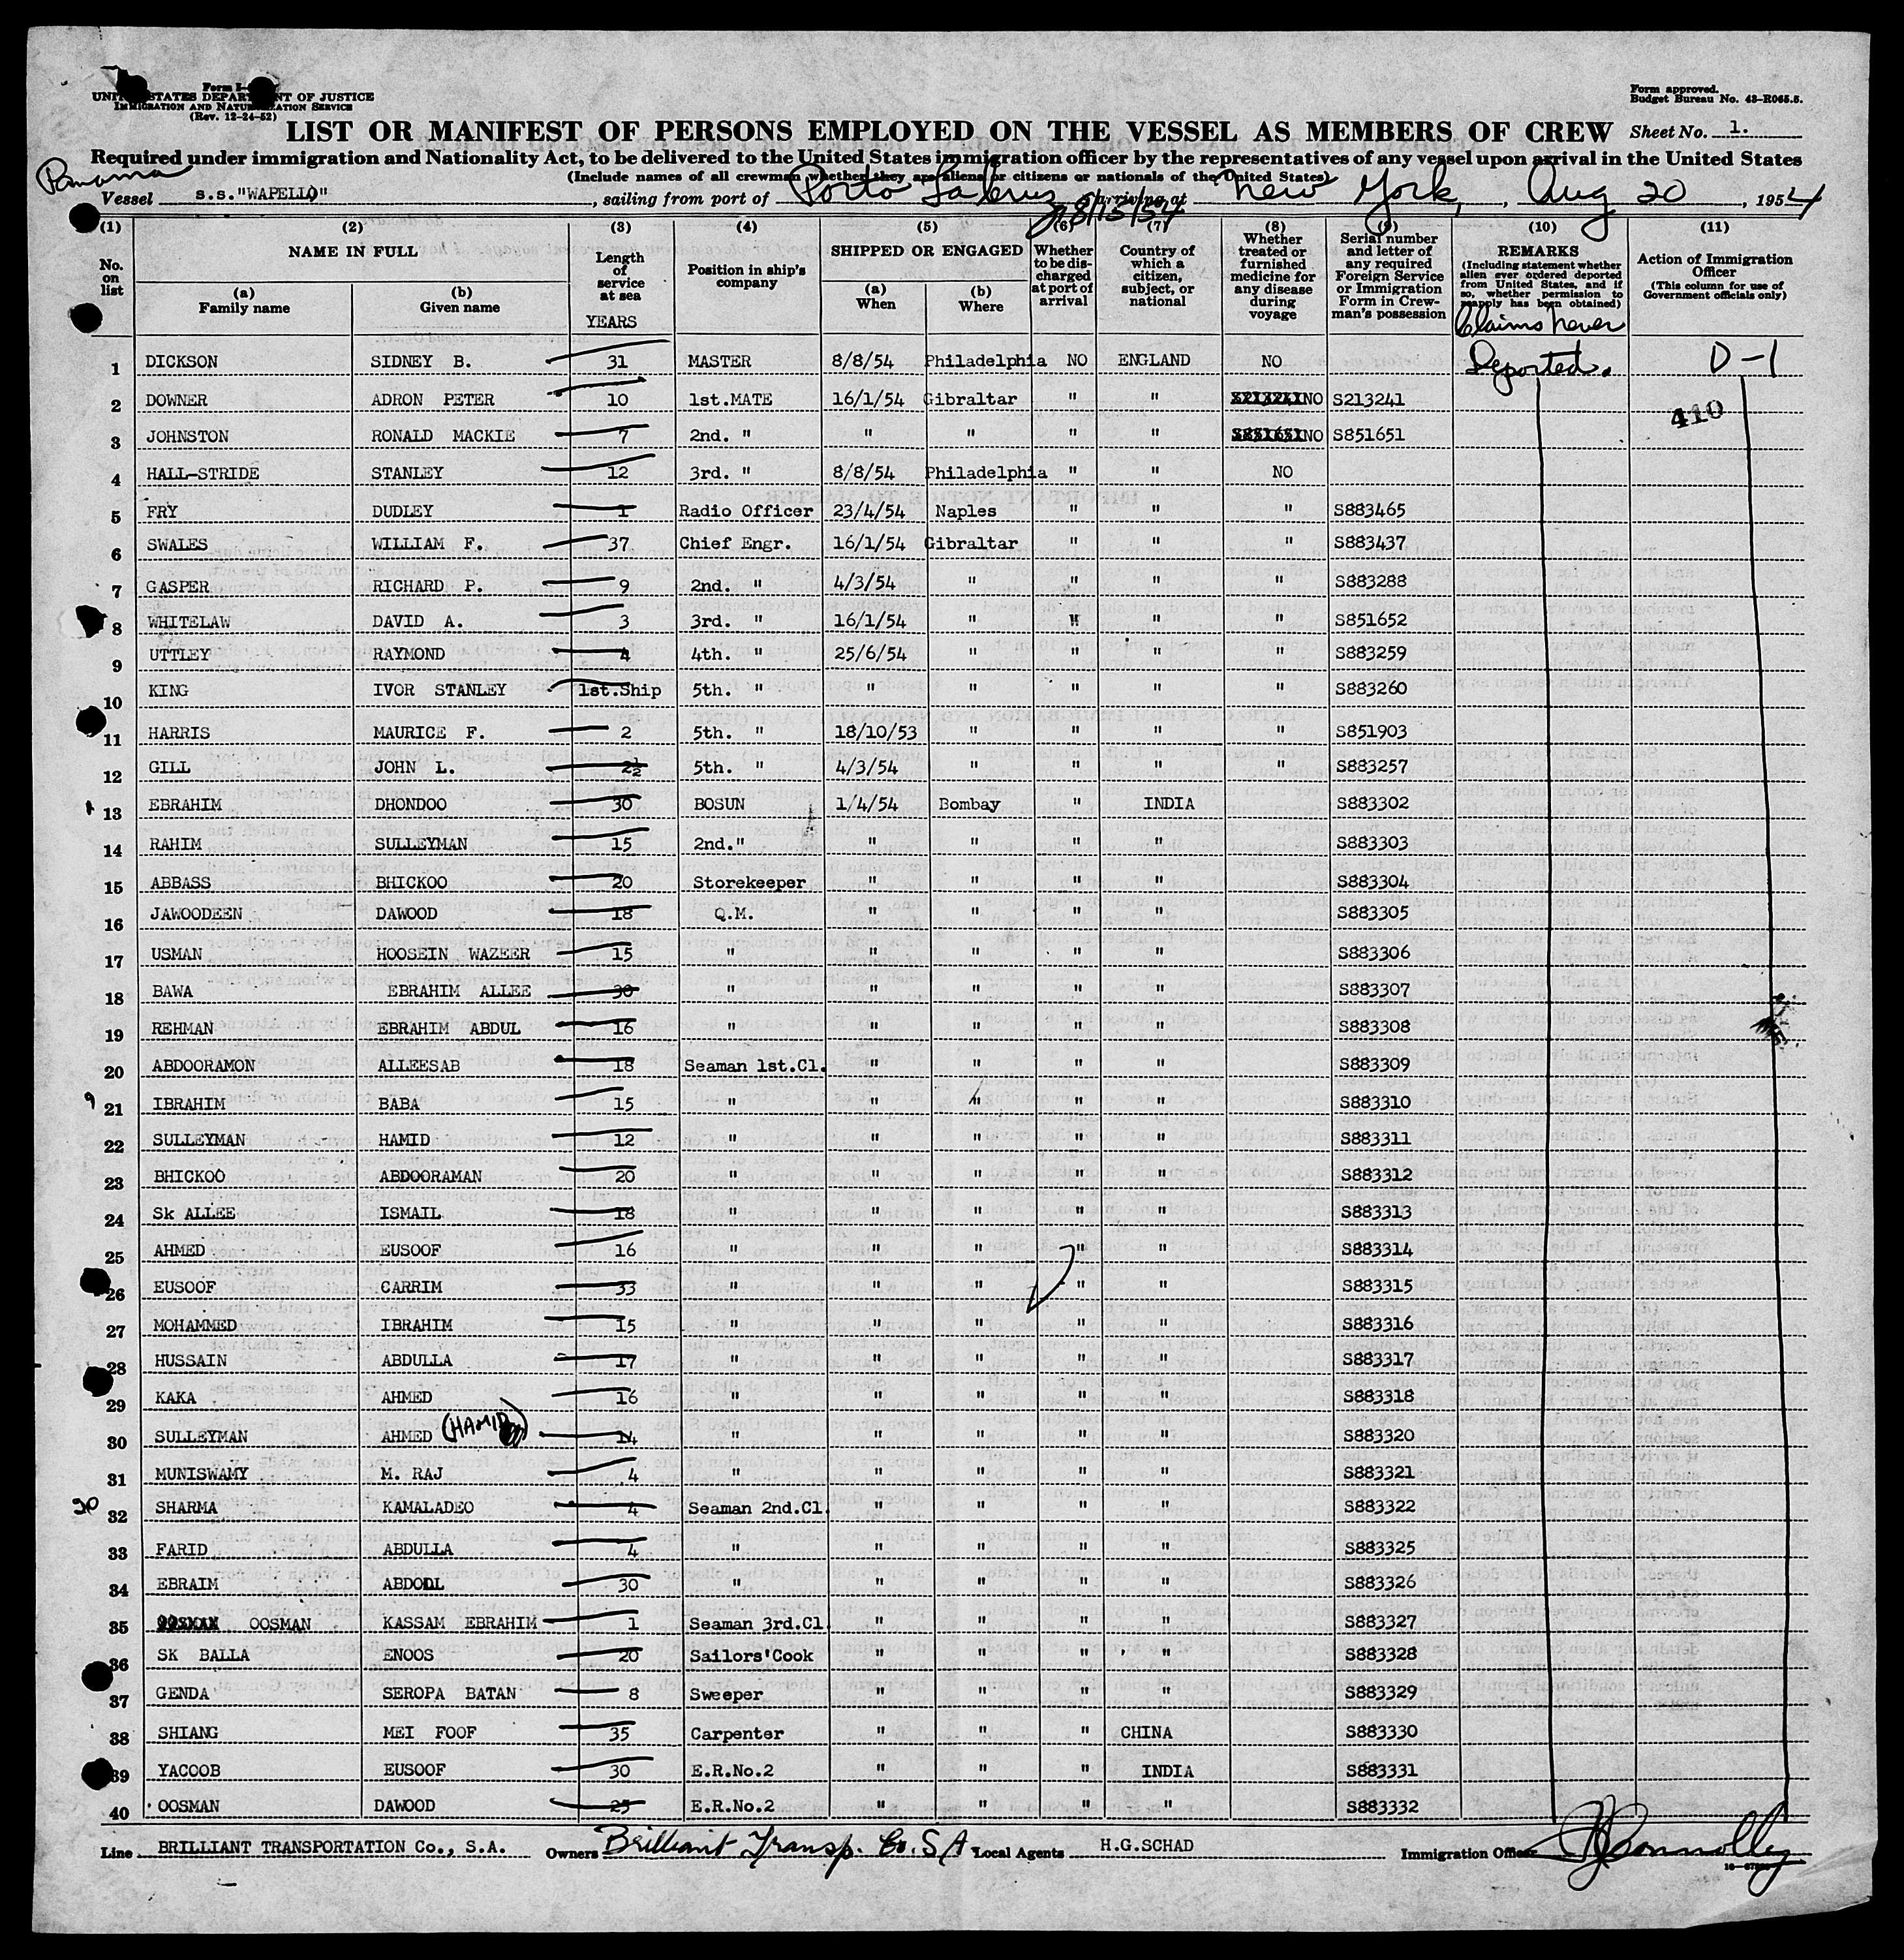 Form I-
UNITED STATES DEPARTMENT OF JUSTICE
IMMIGRATION AND NATURALIZATION SERVICE
(Rev. 12-24-52)
Form approved.
Budget Bureau No. 43-R065.5.
LIST OR MANIFEST OF PERSONS EMPLOYED ON THE VESSEL AS MEMBERS OF CREW Sheet No. 1.
Required under immigration and Nationality Act, to be delivered to the United States immigration officer by the representatives of any vessel upon arrival in the United States
(Include names of all crewman whether they are aliens or citizens or nationals of the United States)
Panama
Vessel s.s."WAPELLO", sailing from port of Porto La Cruz arriving at New York, Aug 20, 1954
8/15/54
(1) (2) (3) (4) (5) (6) (7) (8) (9) (10) (11)
No. on list NAME IN FULL Length of service at sea Position in ship's company SHIPPED OR ENGAGED Whether to be discharged at port of arrival Country of which a citizen, subject, or national Whether treated or furnished medicine for any disease during voyage Serial number and letter of any required Foreign Service or Immigration Form in Crewman's possession REMARKS (Including statement whether alien ever ordered deported from United States, and if so, whether permission to reapply has been obtained) Action of Immigration Officer (This column for use of Government officials only)
(a) Family name (b) Given name YEARS (a) When (b) Where
Claims never
Deported.
1 DICKSON SIDNEY B. 31 MASTER 8/8/54 Philadelphia NO ENGLAND NO D-1
2 DOWNER ADRON PETER 10 1st.MATE 16/1/54 Gibraltar " " NO S213241 410
3 JOHNSTON RONALD MACKIE 7 2nd. " " " " " NO S851651
4 HALL-STRIDE STANLEY 12 3rd. " 8/8/54 Philadelphia " " NO
5 FRY DUDLEY 1 Radio Officer 23/4/54 Naples " " " S883465
6 SWALES WILLIAM F. 37 Chief Engr. 16/1/54 Gibraltar " " " S883437
7 GASPER RICHARD P. 9 2nd. " 4/3/54 " " " " S883288
8 WHITELAW DAVID A. 3 3rd. " 16/1/54 " " " " S851652
9 UTTLEY RAYMOND 4 4th. " 25/6/54 " " " " S883259
10 KING IVOR STANLEY 1st.Ship 5th. " " " " " " S883260
11 HARRIS MAURICE F. 2 5th. " 18/10/53 " " " " S851903
12 GILL JOHN L. 2½ 5th. " 4/3/54 " " " " S883257
13 EBRAHIM DHONDOO 30 BOSUN 1/4/54 Bombay " INDIA S883302
14 RAHIM SULLEYMAN 15 2nd." " " " " S883303
15 ABBASS BHICKOO 20 Storekeeper " " " " S883304
16 JAWOODEEN DAWOOD 18 Q.M. " " " " S883305
17 USMAN HOOSEIN WAZEER 15 " " " " " S883306
18 BAWA EBRAHIM ALLEE 30 " " " " " S883307
19 REHMAN EBRAHIM ABDUL 16 " " " " " S883308
20 ABDOORAMON ALLEESAB 18 Seaman 1st.Cl. " " " " S883309
9
21 IBRAHIM BABA 15 " " " " " S883310
22 SULLEYMAN HAMID 12 " " " " " S883311
23 BHICKOO ABDOORAMAN 20 " " " " " S883312
24 Sk ALLEE ISMAIL 18 " " " " " S883313
25 AHMED EUSOOF 16 " " " " " S883314
26 EUSOOF CARRIM 33 " " " " " S883315
27 MOHAMMED IBRAHIM 15 " " " " " S883316
28 HUSSAIN ABDULLA 17 " " " " " S883317
29 KAKA AHMED 16 " " " " " S883318
30 SULLEYMAN AHMED (HAMID) 14 " " " " " S883320
31 MUNISWAMY M. RAJ 4 " " " " " S883321
32 SHARMA KAMALADEO 4 Seaman 2nd.Cl. " " " " S883322
33 FARID ABDULLA 4 " " " " " S883325
34 EBRAIM ABDOOL 30 " " " " " S883326
35 OOSMAN KASSAM EBRAHIM 1 Seaman 3rd.Cl. " " " " S883327
36 SK BALLA ENOOS 20 Sailors'Cook " " " " S883328
37 GENDA SEROPA BATAN 8 Sweeper " " " " S883329
38 SHIANG MEI FOOF 35 Carpenter " " " CHINA S883330
39 YACOOB EUSOOF 30 E.R.No.2 " " " INDIA S883331
40 OOSMAN DAWOOD 25 E.R.No.2 " " " " S883332
Line BRILLIANT TRANSPORTATION Co., S.A. Owners Brilliant Transp. Co. S A Local Agents H.G.SCHAD Immigration Officer Connolly